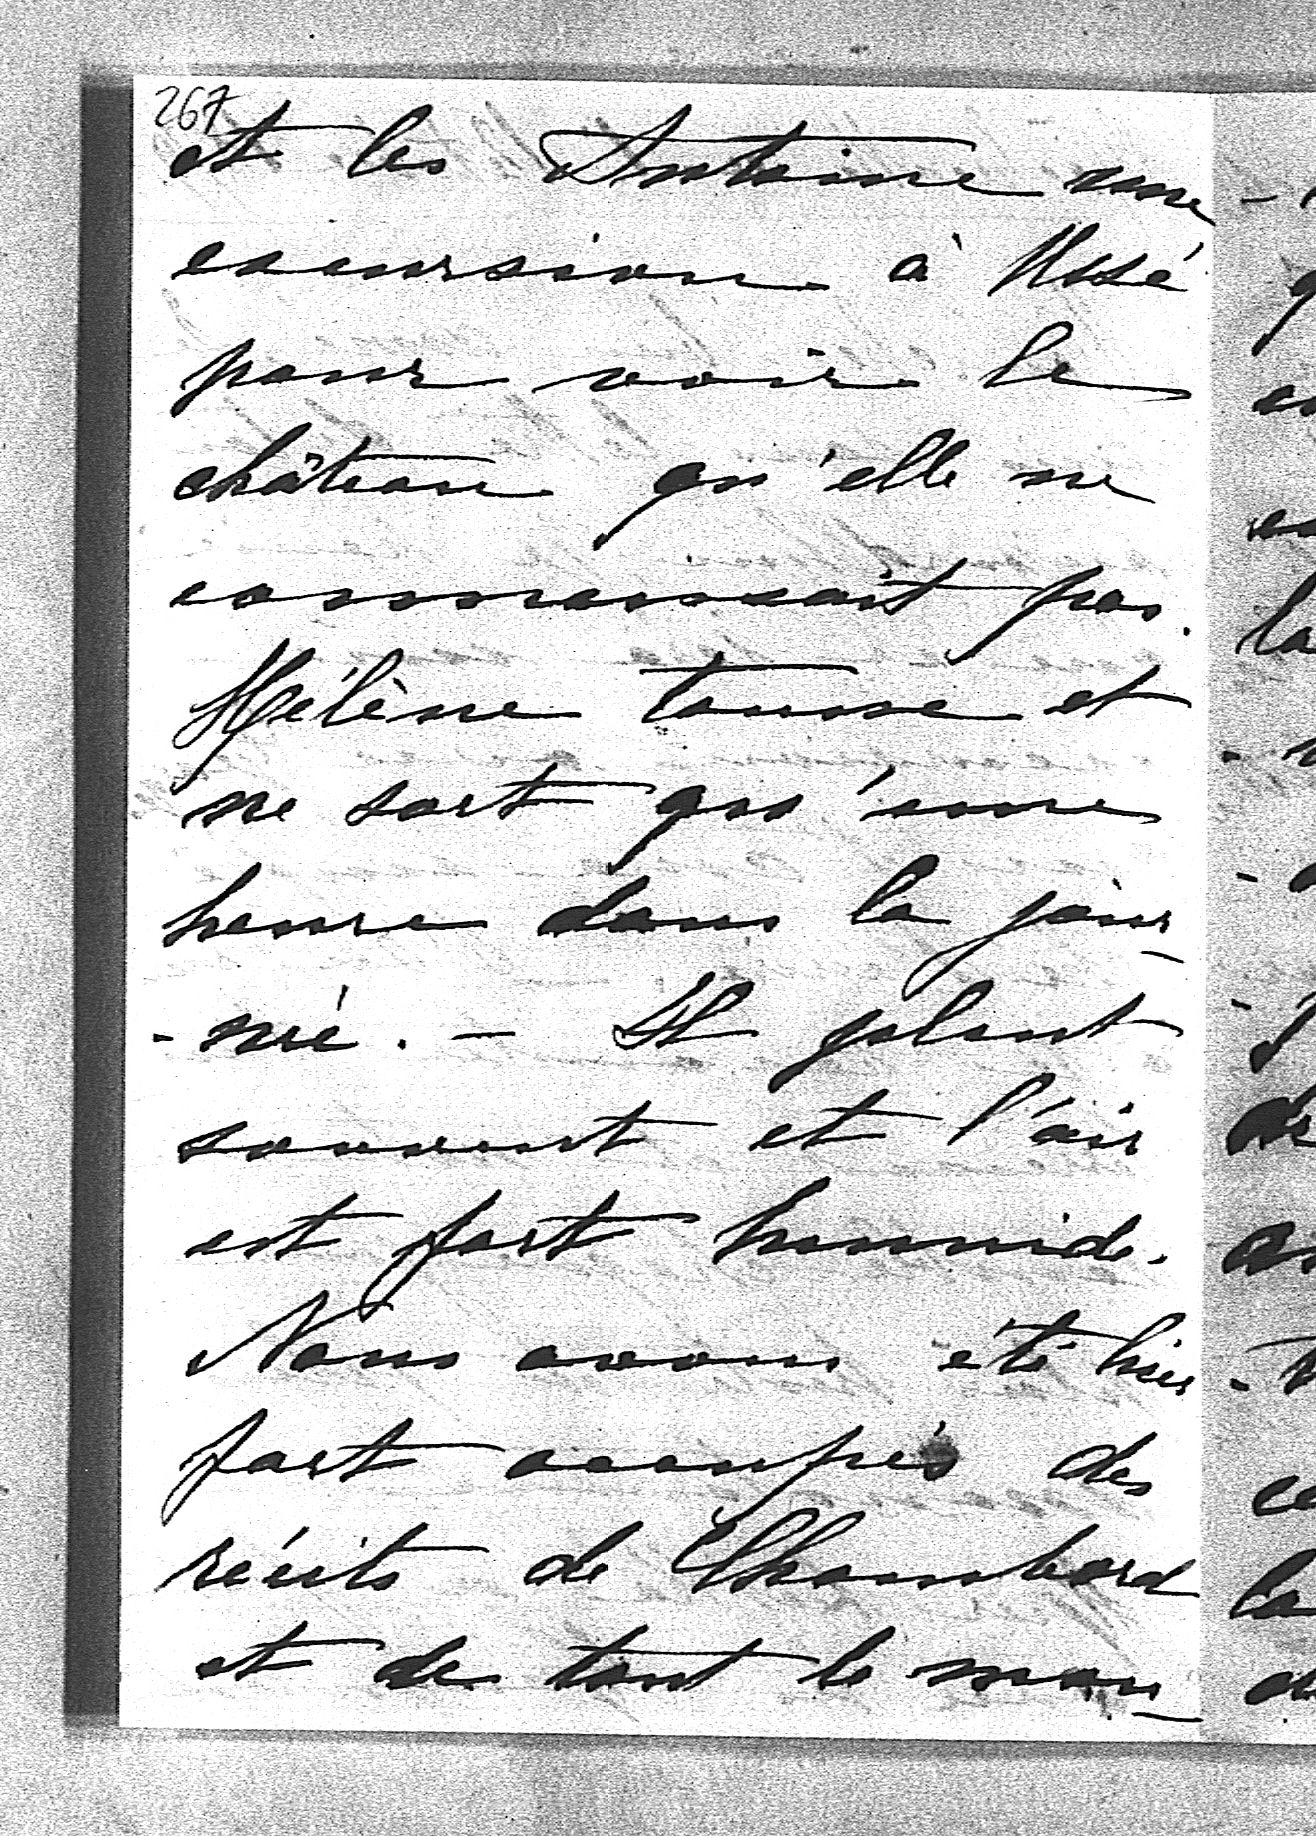 267
et les Antoine une
excursion à Ussé
pour voir le
château qu'elle ne
connaissait pas.
Hélène tousse et
ne sort qu'une
heure dans la jour-
-née. - Il pleut
souvent et l'air
est fort humide.
Nous avons été hier
fort occupés des
récits de Chambord
et de tout le mon-